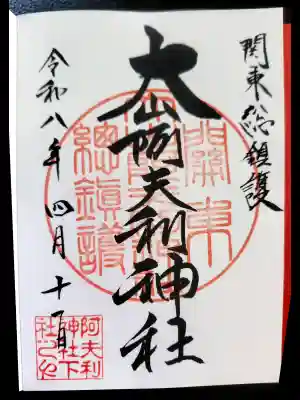 関東総鎮護
大山阿夫利神社
令和八年四月十一日
關東
總鎮護
阿夫利
神社下
社之印